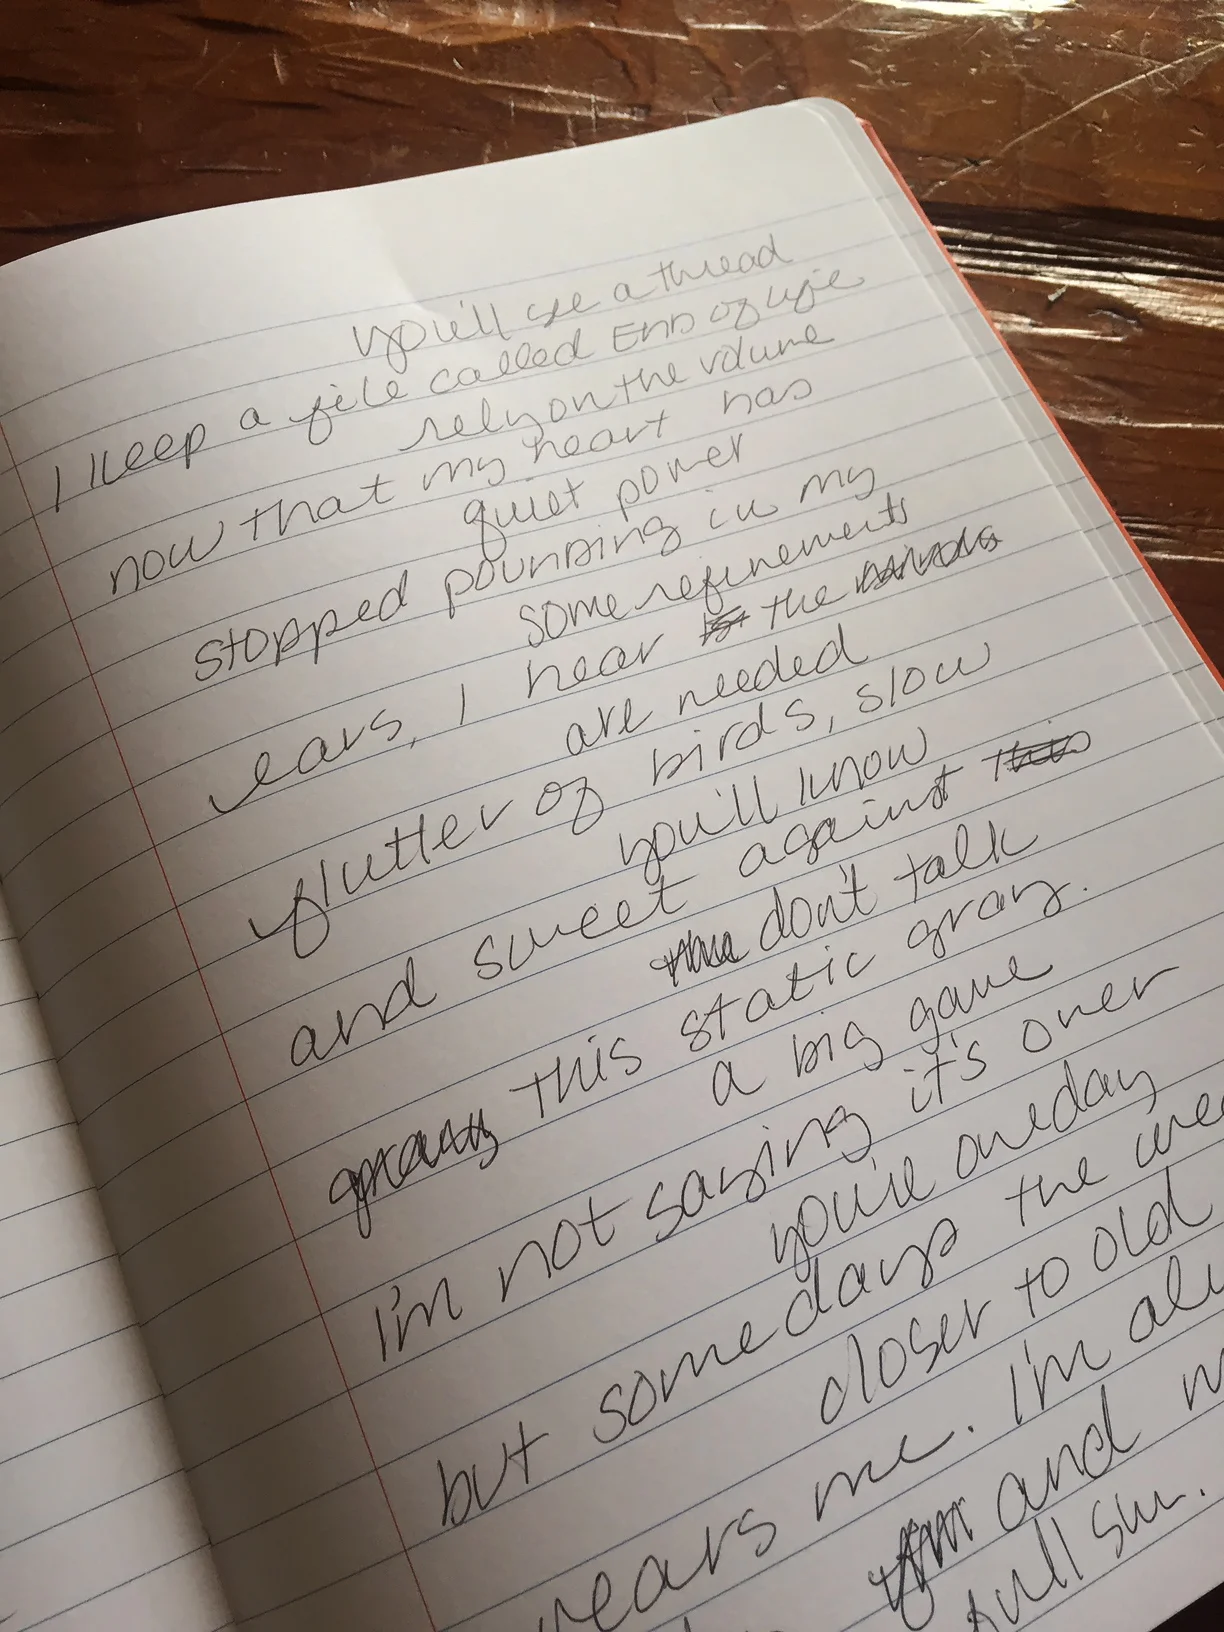 you'll see a thread
I keep a file called End of Life
rely on the volume
now that my heart has
quiet power
stopped pounding in my
some refinements
ears, I hear the
are needed
flutter of birds, slow
you'll know
and sweet against this
don't talk
gray this static gray.
a big game
I'm not saying it's over
you're one day
but some days the
closer to old
wears me. I'm
and
full sun.